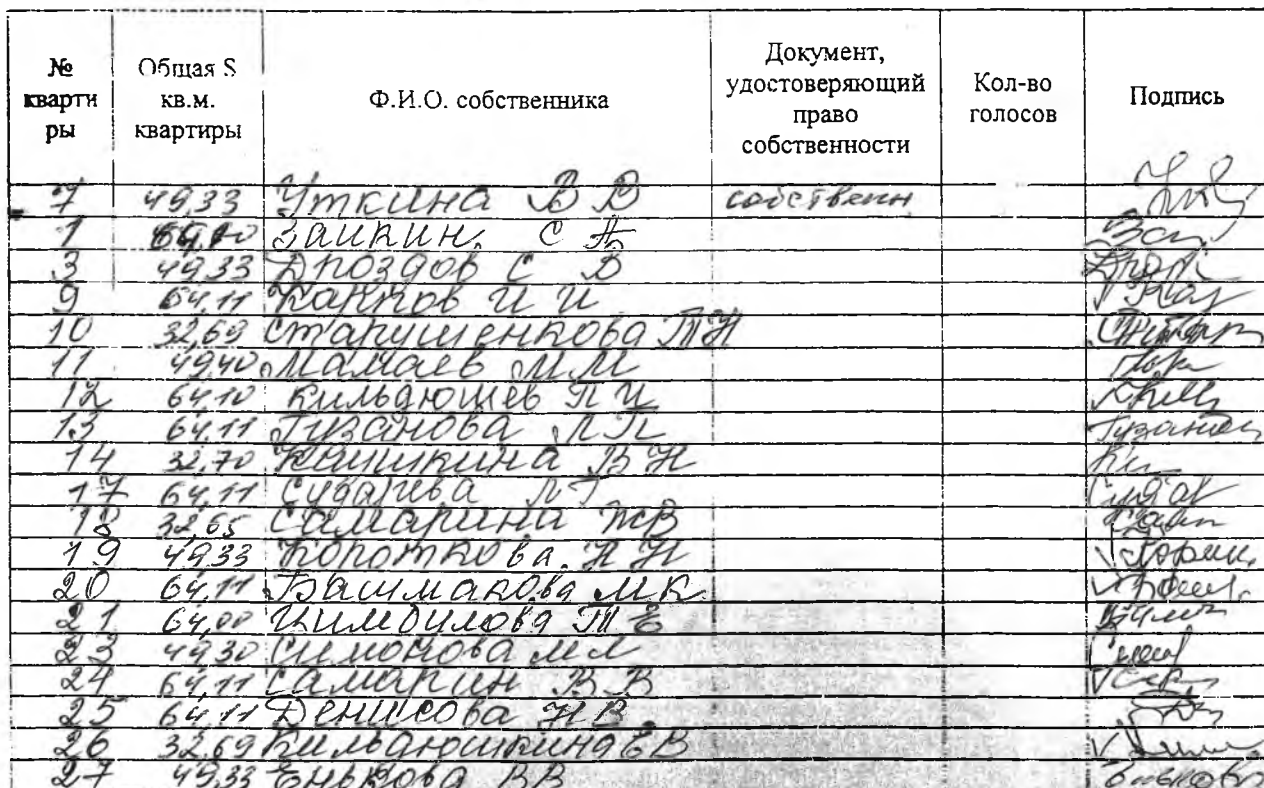 № кварти ры Общая S кв.м. квартиры Ф.И.О. собственника Документ, удостоверяющий право собственности Кол-во голосов Подпись
7 49,33 Уткина В В собственн
1 64,10 Заикин С А
3 49,33 Дроздов С В
9 64,11 И И
10 32,69 Старушенкова Т Н
11 49,40 Мамаев М М
12 64,10 Кильдюшев П И
13 64,11 Гузанова Л П Гузанова
14 32,70 Кашкина В Н
17 64,11 Сударева Л Г
18 32,65 Самарина ЖВ
19 49,33 Короткова Н Н
20 64,11 Башмакова М К
21 64,00 Цимбулова Т Е
23 49,30 Симонова М Л
24 64,11 Самарин В В
25 64,11 Денисова Н В
26 32,69 Кильдюшкина ЕВ
27 49,33 Енькова В В Енькова